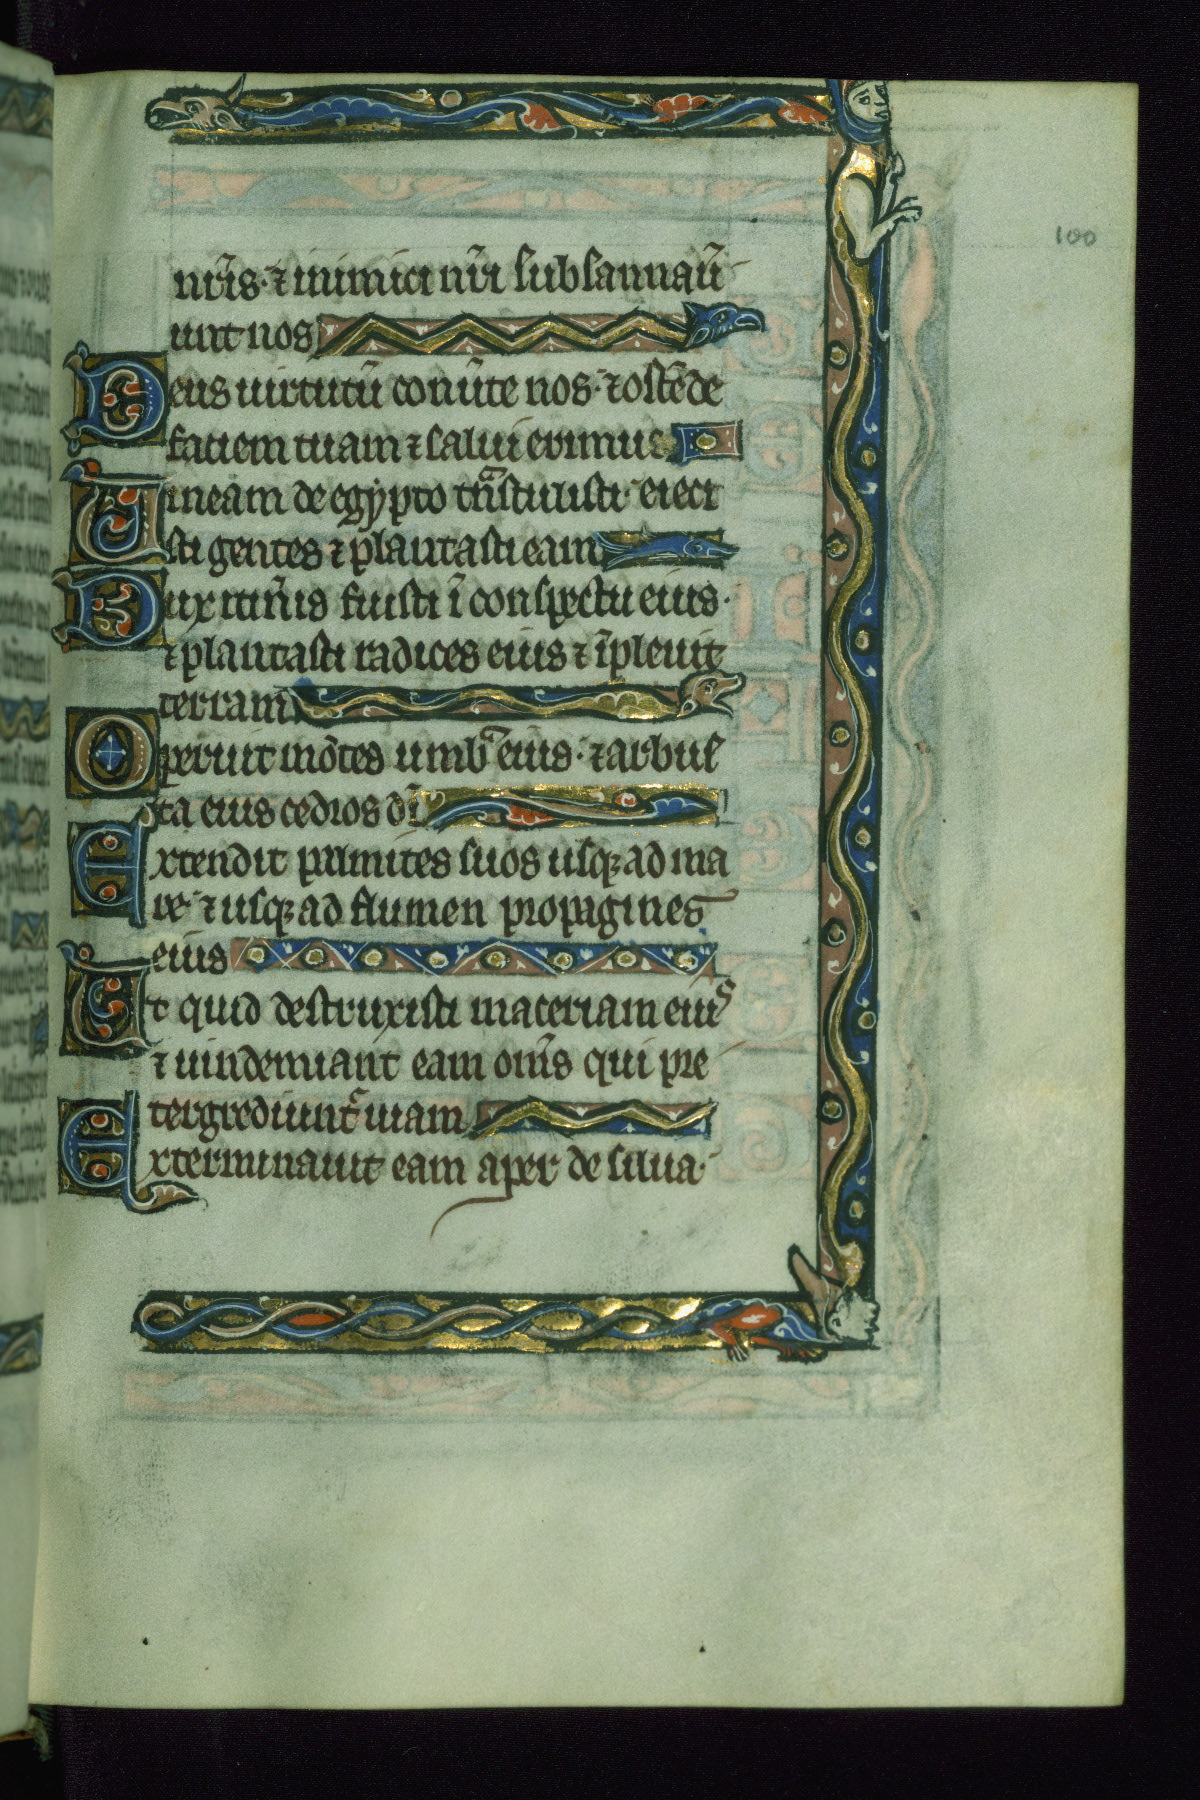 100
nr̄is· ⁊ inimici nr̄i subsannaū
unt nos
Deus uirtutū conūte nos· ⁊ ostēde
faciem tuam ⁊ salui erimus
Uineam de egypto tᵃnstulisti· eieci
sti gentes ⁊ plantasti eam
Dux itin̄is fuisti ī conspectu eius·
⁊ plantasti radices eius ⁊ īpleuit
terram
Operuit mōtes umbᵃ eius· ⁊ arbus
ta eius cedros dī
Extendit palmites suos usqꝫ ad ma
re· ⁊ usqꝫ ad flumen propagines
eius
Ut quid destruxisti maceriam eius
⁊ uindemiant eam om̄s qui pre
tergrediunt᷑ uiam
Exterminauit eam aper de silua·